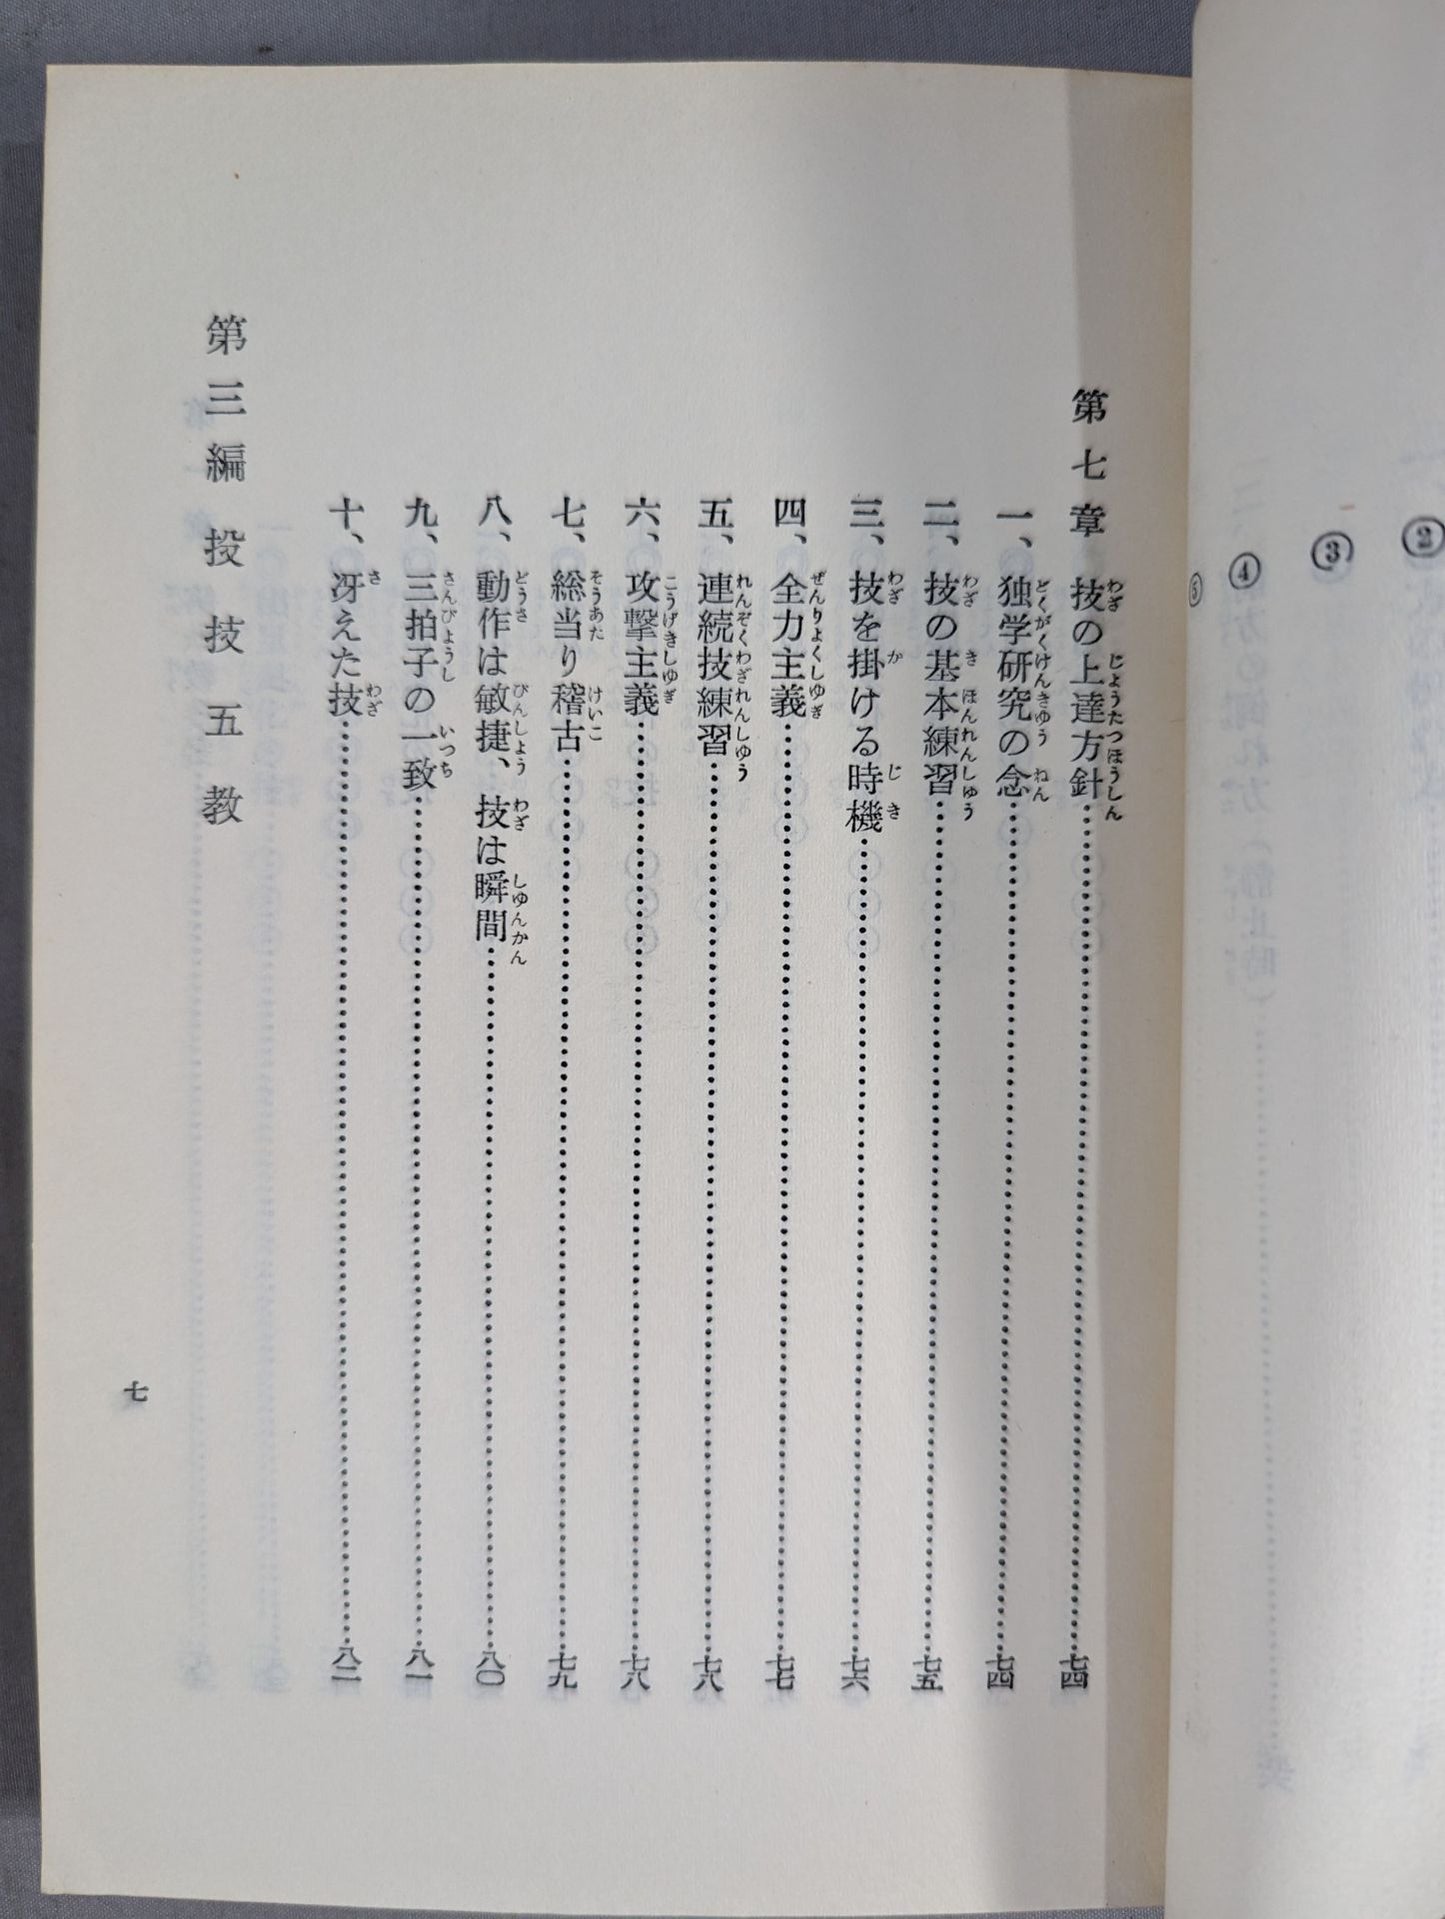 第七章 技の上達方針……………………七四
一、独学研究の念……………………七四
二、技の基本練習……………………七五
三、技を掛ける時機……………………七六
四、全力主義……………………七七
五、連続技練習……………………七八
六、攻撃主義……………………七八
七、総当り稽古……………………七九
八、動作は敏捷、技は瞬間……………………八〇
九、三拍子の一致……………………八一
十、冴えた技……………………八二
第三編 投技五教
七
②
③
④
⑤